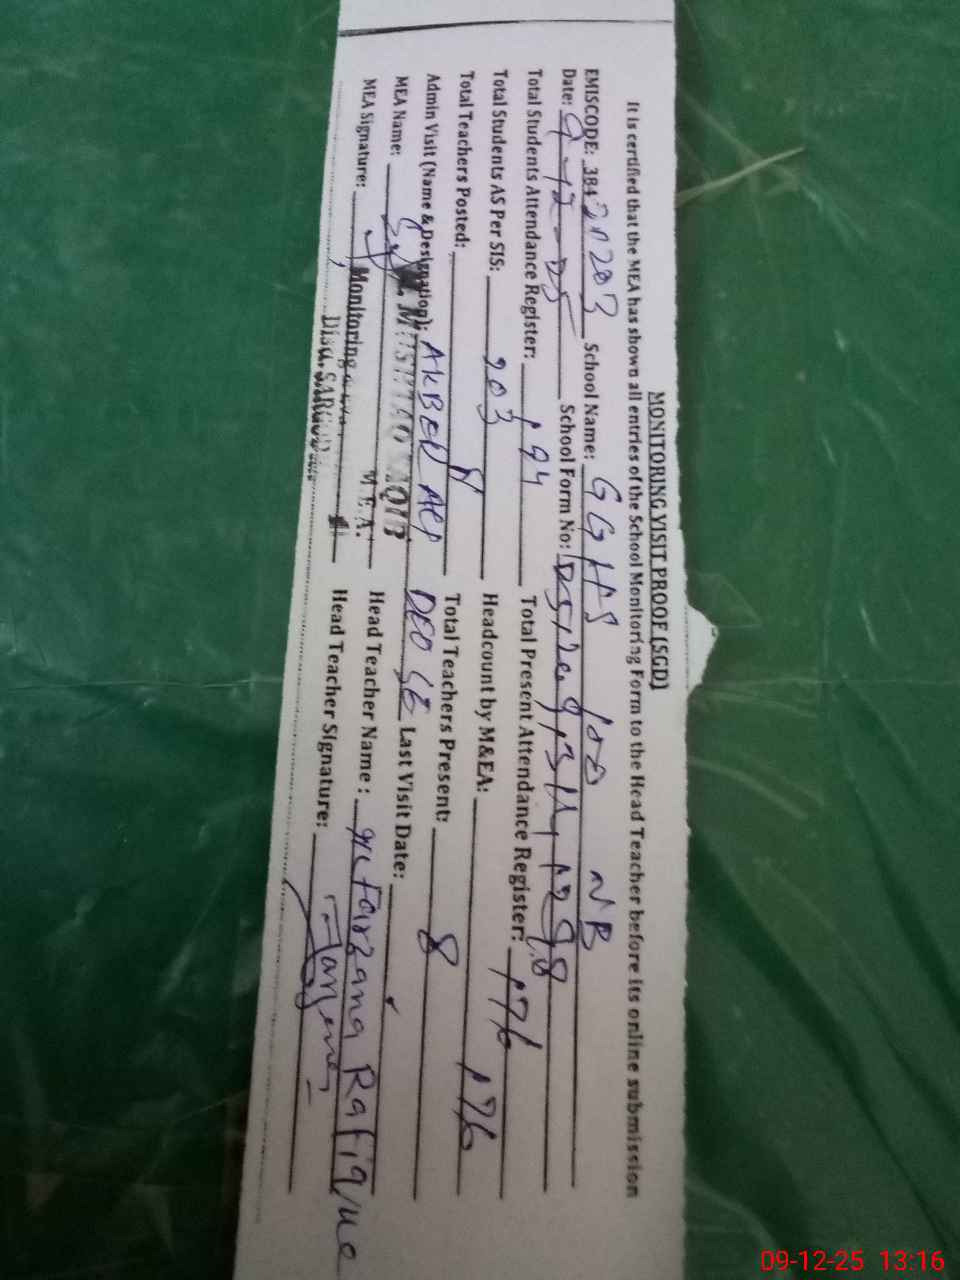 MONITORING VISIT PROOF (SGD)
It is certified that the MEA has shown all entries of the School Monitoring Form to the Head Teacher before its online submission
EMISCODE: 384 School Name: GGHS 100 NB
Date: 9-12-25 School Form No:
Total Students Attendance Register: 194 Total Present Attendance Register: 176
Total Students AS Per SIS: 203 Headcount by M&EA: 176
Total Teachers Posted: 8 Total Teachers Present: 8
Admin Visit (Name & Designation): AKBER ALI DEO SE Last Visit Date:
MEA Name: M.E.A. Head Teacher Name: Farzana Rafique
MEA Signature: Monitoring Head Teacher Signature:
Distt. SARGODHA
09-12-25 13:16